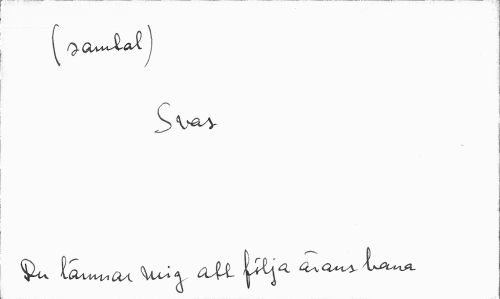 (samtal)
Svar
Du lämnar mig att följa ärans bana